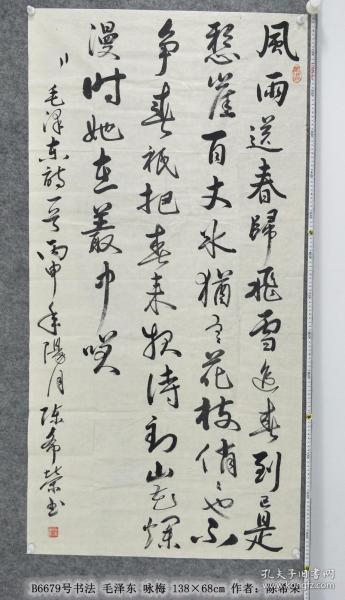 風雨送春歸飛雪迎春到已是
懸崖百丈冰猶有花枝俏俏也不
争春祇把春来报待到山花爛
漫时她在叢中笑
毛泽东詩一首丙申年陽月陈希榮书
B6679号书法 毛泽东 咏梅 138×68cm 作者：陈希荣
孔夫子旧书网